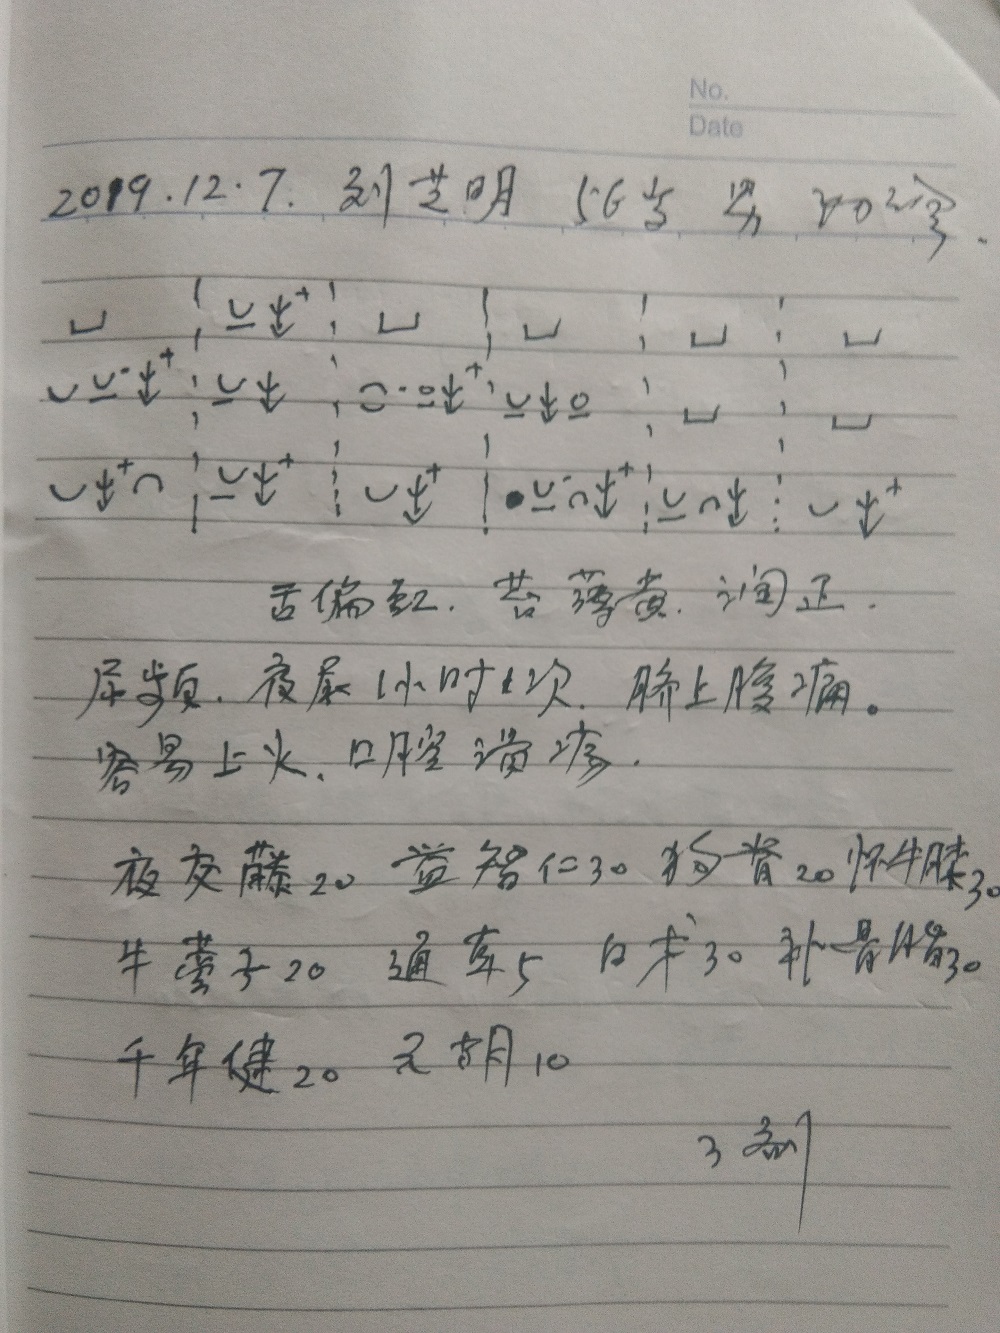 No.
Date
2019.12.7. 刘芝明 56岁 男 初诊.
舌偏红. 苔薄黄. 润正.
尿频. 夜尿1小时1次. 脐上腹痛。
容易上火、口腔溃疡.
夜交藤20 益智仁30 狗脊20 怀牛膝30
牛蒡子20 通草5 白术30 补骨脂30
千年健20 元胡10
3剂